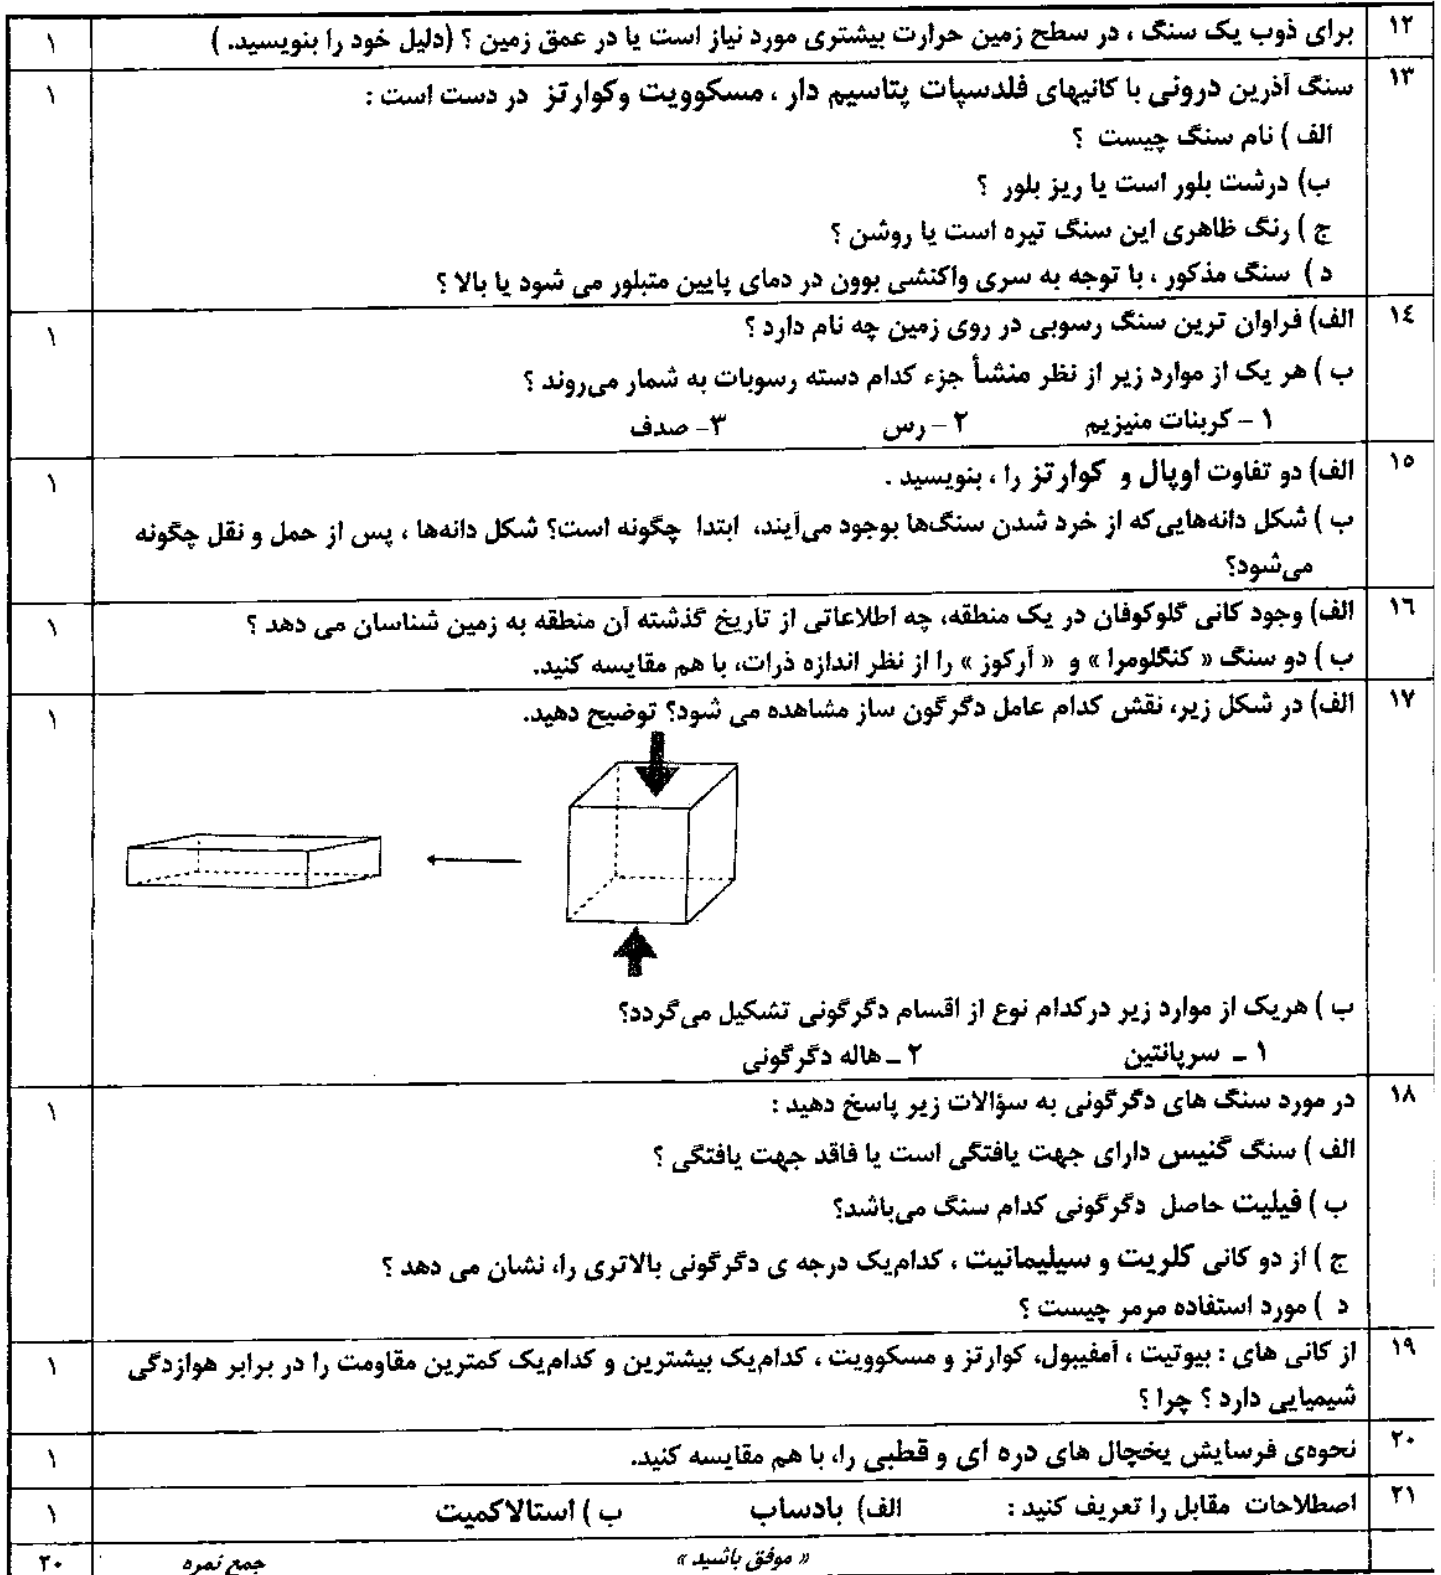 ۱۲ برای ذوب یک سنگ ، در سطح زمین حرارت بیشتری مورد نیاز است یا در عمق زمین ؟ (دلیل خود را بنویسید. ) ۱
۱۳ سنگ آذرین درونی با کانیهای فلدسپات پتاسیم دار ، مسکوویت وکوارتز در دست است : ۱
الف ) نام سنگ چیست ؟
ب) درشت بلور است یا ریز بلور ؟
ج ) رنگ ظاهری این سنگ تیره است یا روشن ؟
د ) سنگ مذکور ، با توجه به سری واکنشی بوون در دمای پایین متبلور می شود یا بالا ؟
۱٤ الف) فراوان ترین سنگ رسوبی در روی زمین چه نام دارد ؟ ۱
ب ) هر یک از موارد زیر از نظر منشأ جزء کدام دسته رسوبات به شمار می‌روند ؟
۱ – کربنات منیزیم ۲ – رس ۳- صدف
۱۵ الف) دو تفاوت اوپال و کوارتز را ، بنویسید . ۱
ب ) شکل دانه‌هایی‌که از خرد شدن سنگ‌ها بوجود می‌آیند، ابتدا چگونه است؟ شکل دانه‌ها ، پس از حمل و نقل چگونه
می‌شود؟
۱٦ الف) وجود کانی گلوکوفان در یک منطقه، چه اطلاعاتی از تاریخ گذشته آن منطقه به زمین شناسان می دهد ؟ ۱
ب ) دو سنگ « کنگلومرا » و « آرکوز » را از نظر اندازه ذرات، با هم مقایسه کنید.
۱۷ الف) در شکل زیر، نقش کدام عامل دگرگون ساز مشاهده می شود؟ توضیح دهید. ۱
ب ) هریک از موارد زیر درکدام نوع از اقسام دگرگونی تشکیل می‌گردد؟
۱ – سرپانتین ۲ – هاله دگرگونی
۱۸ در مورد سنگ های دگرگونی به سؤالات زیر پاسخ دهید : ۱
الف ) سنگ گنیس دارای جهت یافتگی است یا فاقد جهت یافتگی ؟
ب ) فیلیت حاصل دگرگونی کدام سنگ می‌باشد؟
ج ) از دو کانی کلریت و سیلیمانیت ، کدام‌یک درجه ی دگرگونی بالاتری را، نشان می دهد ؟
د ) مورد استفاده مرمر چیست ؟
۱۹ از کانی های : بیوتیت ، آمفیبول، کوارتز و مسکوویت ، کدام‌یک بیشترین و کدام‌یک کمترین مقاومت را در برابر هوازدگی ۱
شیمیایی دارد ؟ چرا ؟
۲۰ نحوه‌ی فرسایش یخچال های دره ای و قطبی را، با هم مقایسه کنید. ۱
۲۱ اصطلاحات مقابل را تعریف کنید : الف) بادساب ب ) استالاکمیت ۱
« موفق باشید » جمع نمره ۲۰